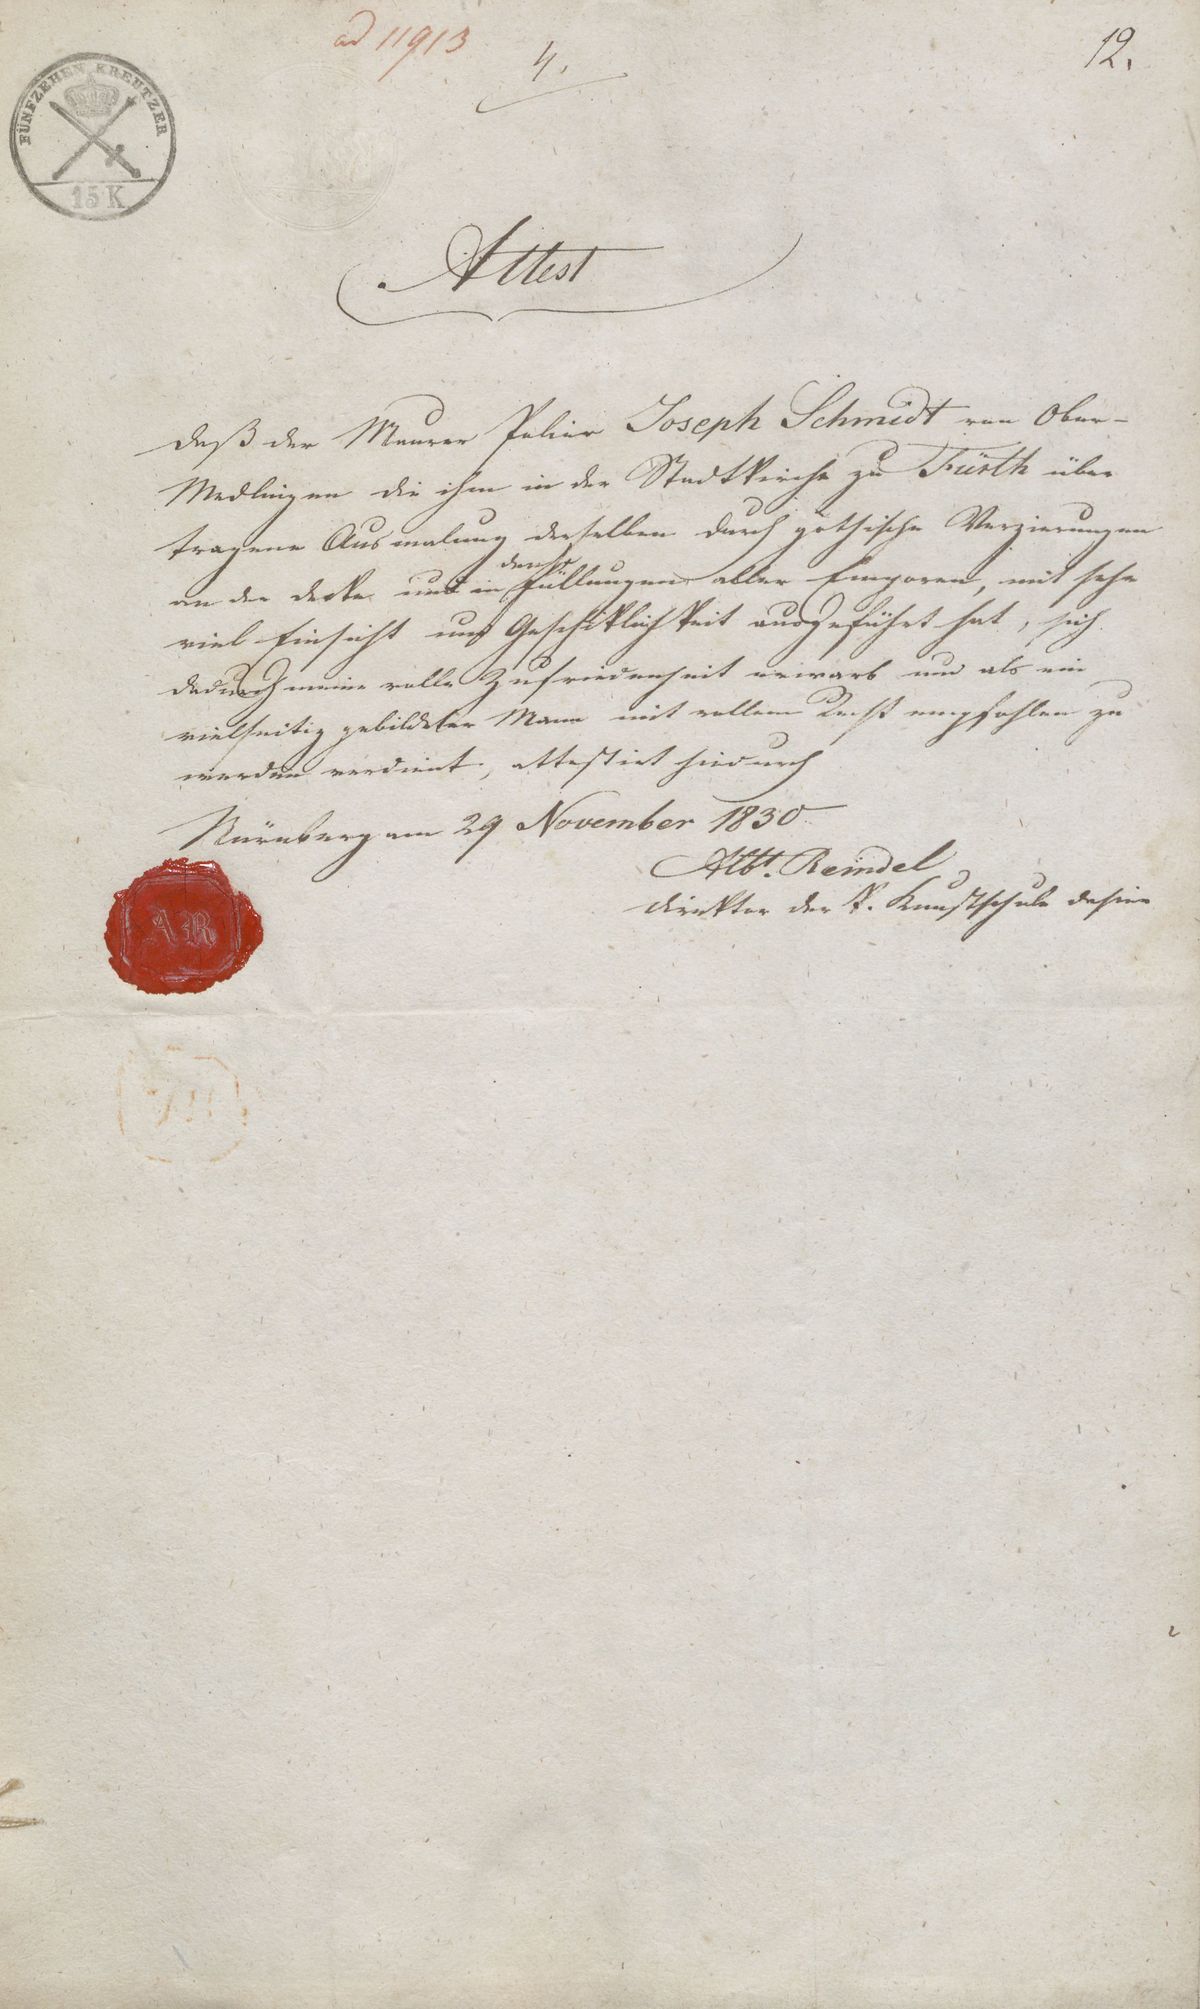 ad 11913
4.
12.
FÜNFZEHEN KREUTZER
15 K
Attest
daß der Maurer Polier Joseph Schmidt von Ober-
Medlingen die ihm in der Stadtkirche zu Fürth über
tragene Ausmalung derselben durch gothische Verzierungen
an der Decke und in Füllungen aller Emporen, mit sehr
viel Einsicht und Geschiklichkeit ausgeführt hat, sich
dadurch meine volle Zufriedenheit erwarb und als ein
vielseitig gebildeter Mann mit vollem Recht empfohlen zu
werden verdient, attestirt hiedurch
Nürnberg am 29 November 1830.
Albt. Reindel
Direktor der k. Kunstschule dahier
AR